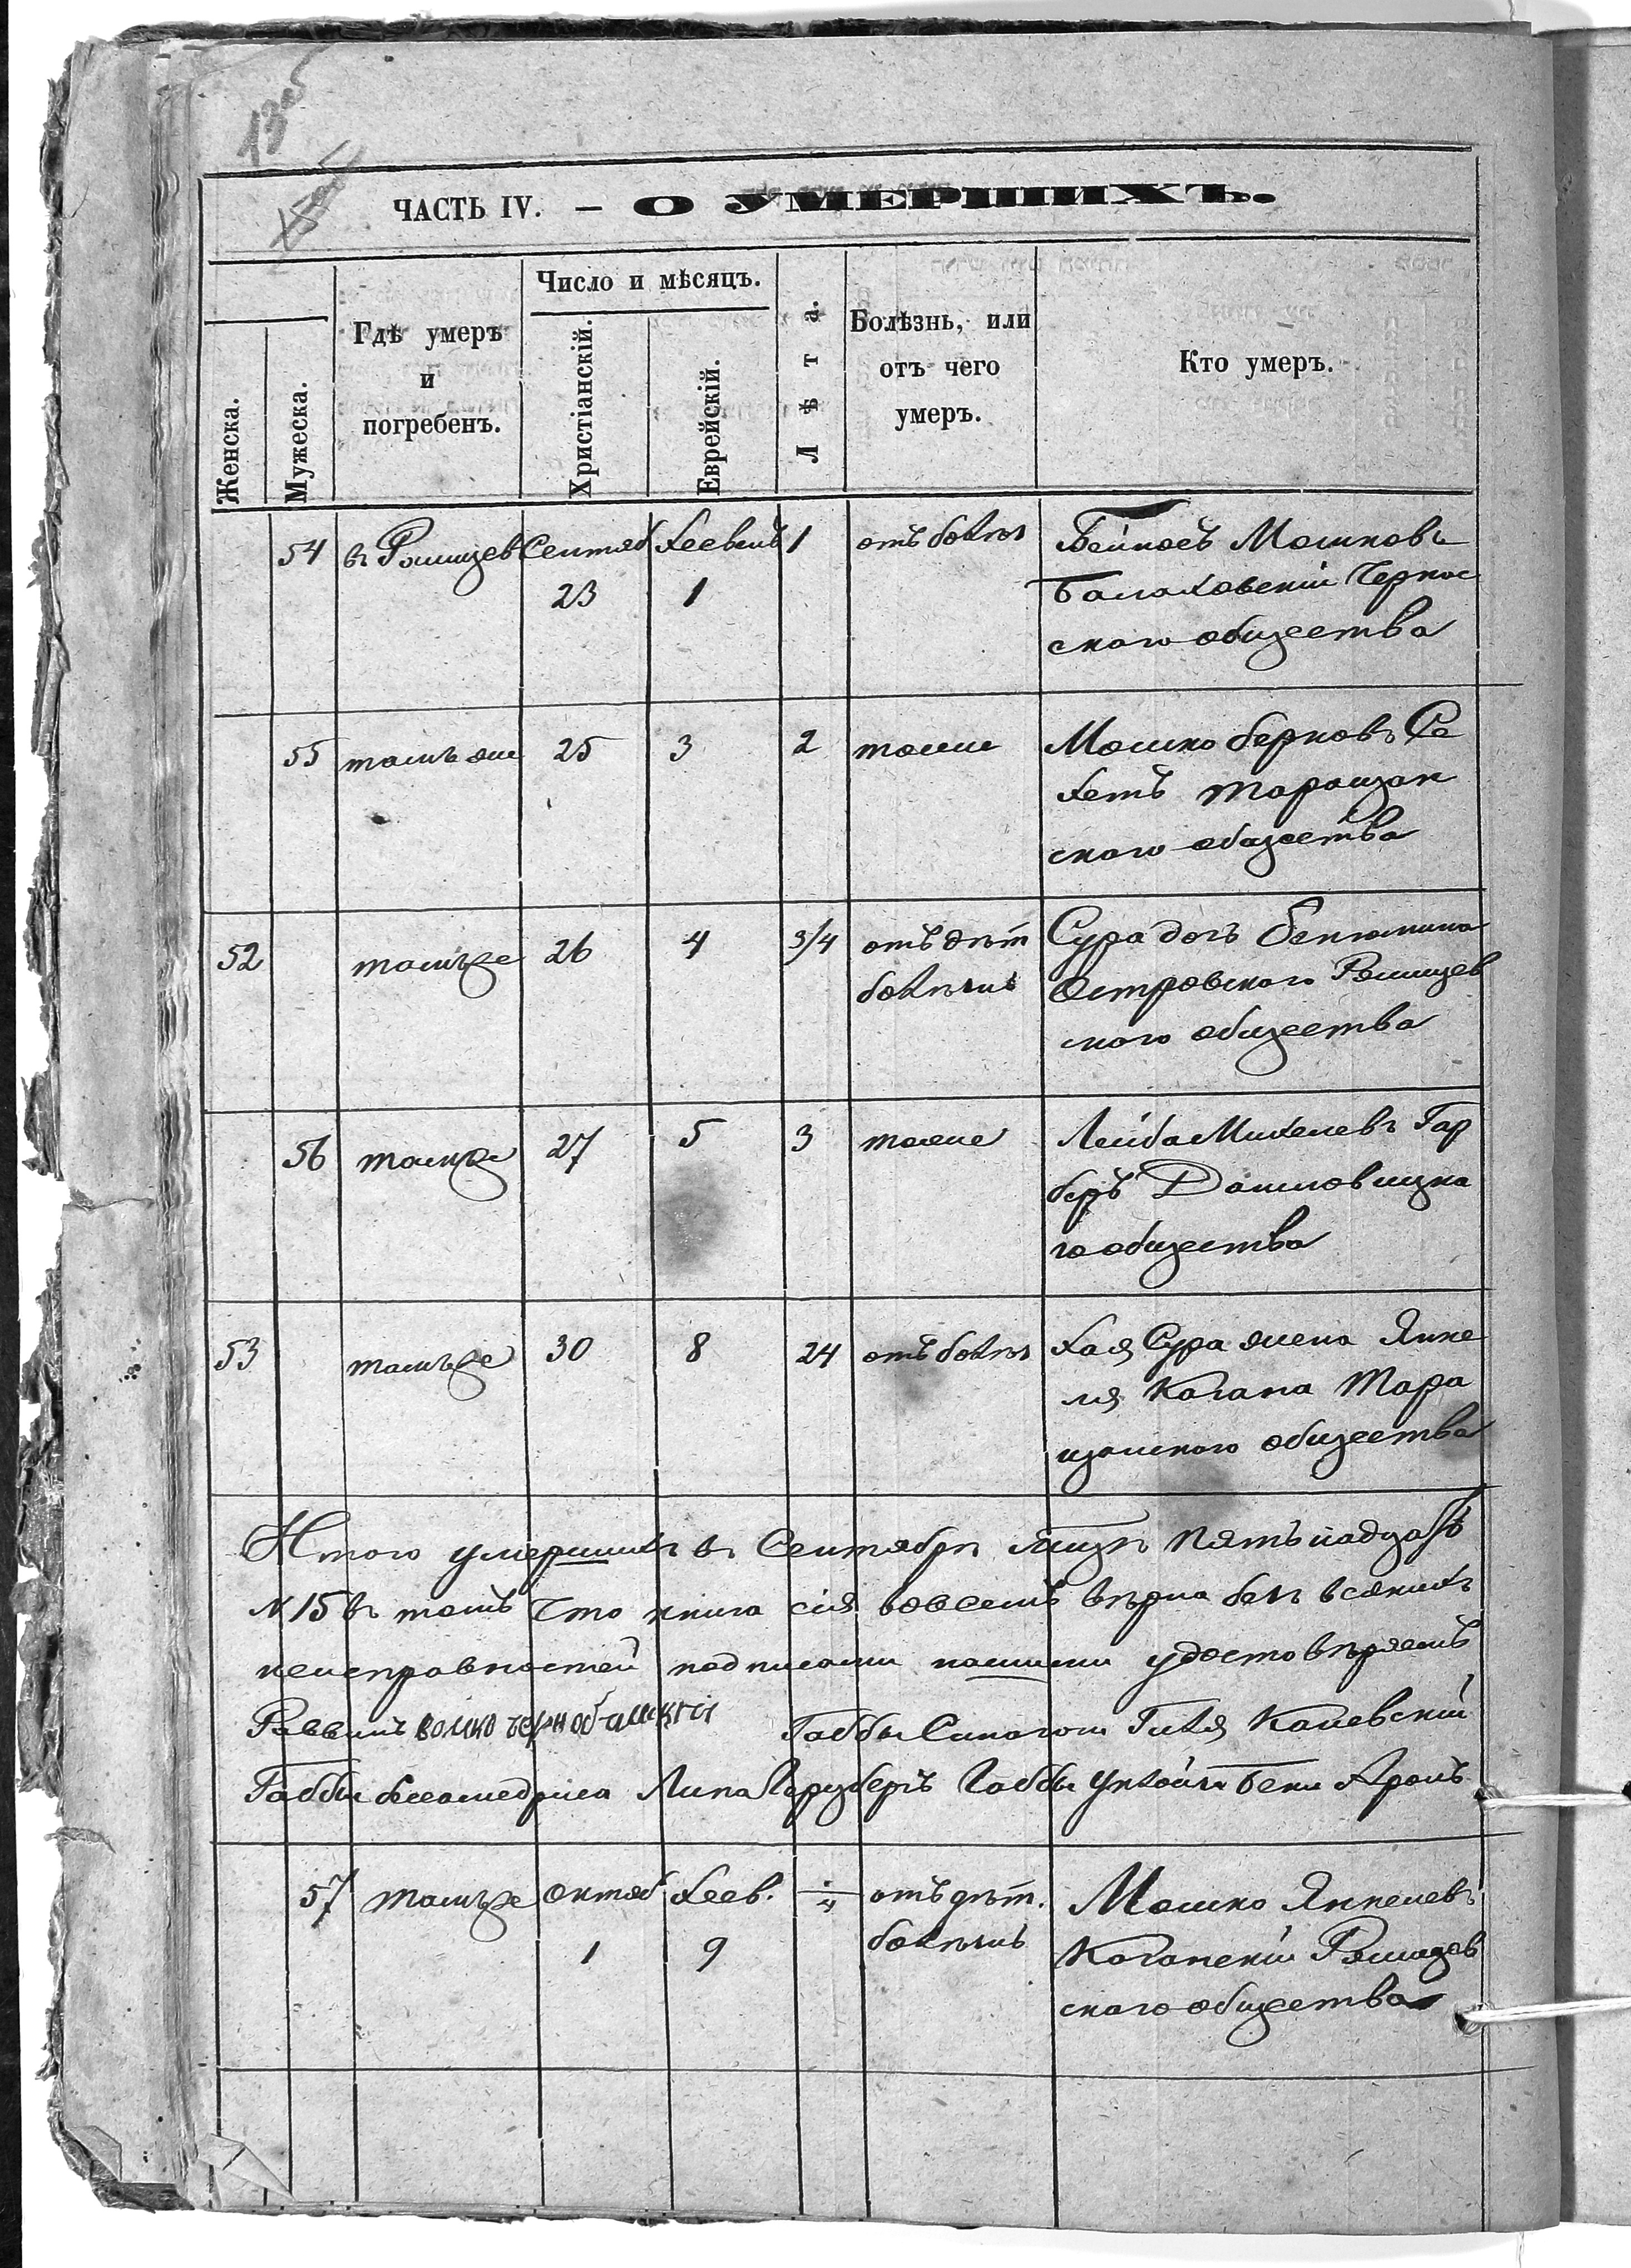 135
ЧАСТЬ IV. — О УМЕРШИХЪ.
Женска.
Мужеска.
Гдѣ умеръ
и
погребенъ.
Число и мѣсяцъ.
Христіанскій.
Еврейскій.
Лѣта.
Болѣзнь, или
отъ чего
умеръ.
Кто умеръ.
54 въ Ржищев Сентяб Хесвенъ 1 отъ болѣз Мошковъ
23 1 Балаховскій Черкас
скаго общества
55 тамъ же 25 3 2 тоже Мошко Берковъ Са
хетъ таращан
скаго общества
52 тамъже 26 4 3/4 отъ дѣт Сура дочь Бенюмина
болѣзни Островского Ржищев
ского общества
56 тамже 27 5 3 тоже Лейба Михелевъ Гар
беръ
го общества
53 тамъже 30 8 24 отъ болѣз Хая Сура жена Янке
ля Кагана Тара
щанского общества
Итого умершихъ въ Сентябрѣ мцѣ пятьнадцать
№ 15 въ томъ что книга сія вовсемъ вѣрна безъ всякихъ
неисправностей подписами нашими удостовѣряемъ
Раввинъ Волко Чернобилскій Габбы Синагоги Каневскій
Габбы Бесамедриса Липа Габбы Бени Аронъ
57 тамъже Октяб Хесв. 1/4 отъ дѣт. Мошко Янкелевъ
1 9 болѣзнъ Каганскій Ржищев
ского общества